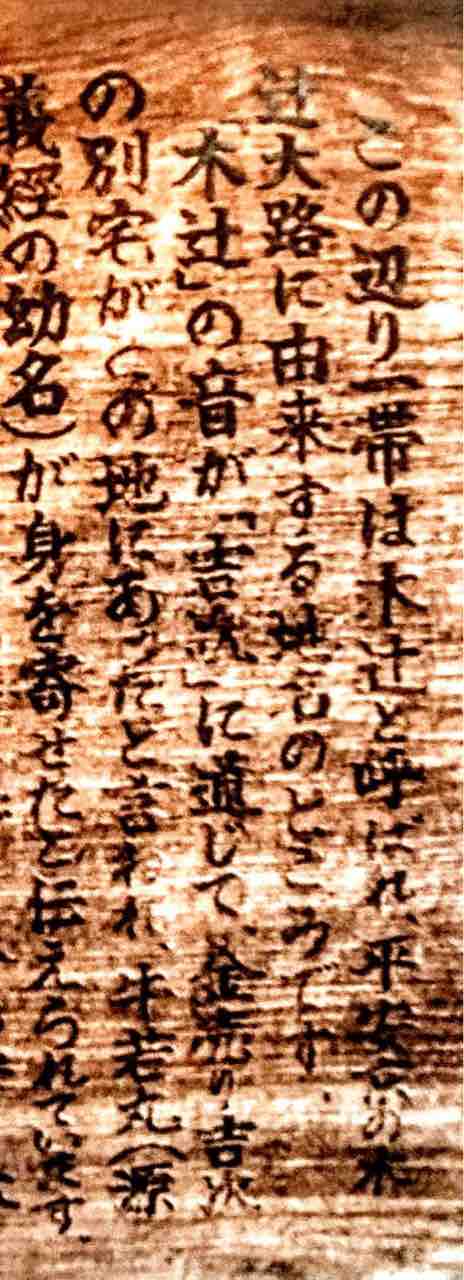 この辺り一帯は木辻と呼ばれ、平安京の木
辻大路に由来する地名のところです。
「木辻」の音が「吉次」に通じて、金売り吉次
の別宅がこの地にあったと言われ、牛若丸（源
義經の幼名）が身を寄せたと伝えられています。